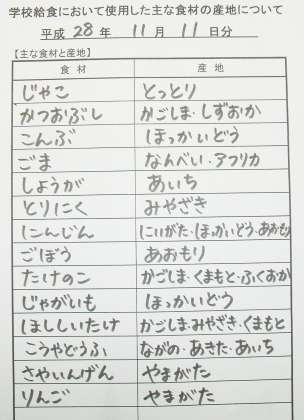 学校給食において使用した主な食材の産地について
平成 28 年 11 月 11 日分
【主な食材と産地】
食材 産地
じゃこ とっとり
かつおぶし かごしま・しずおか
こんぶ ほっかいどう
ごま なんべい・アフリカ
しょうが あいち
とりにく みやざき
にんじん にいがた・ほっかいどう・あおもり
ごぼう あおもり
たけのこ かごしま・くまもと・ふくおか
じゃがいも ほっかいどう
ほししいたけ かごしま・みやざき・くまもと
こうやどうふ ながの・あきた・あいち
さやいんげん やまがた
りんご やまがた